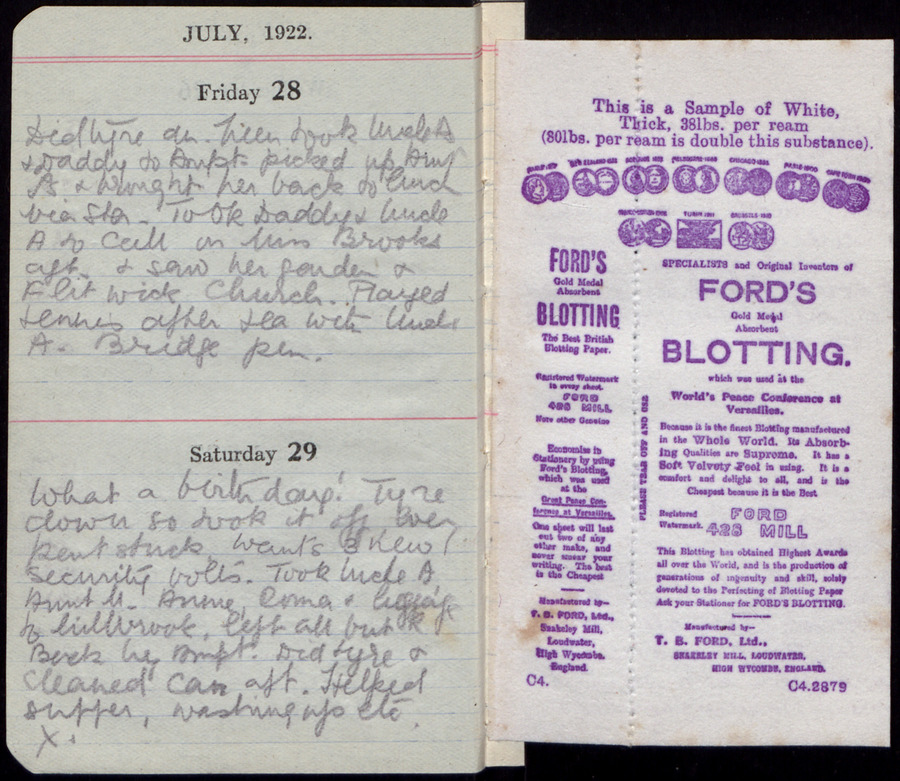 JULY, 1922.
Friday 28
Did tyre an. took Uncle A
& Daddy to Ampt picked up Aunt
& brought her back to lunch
via Stn. Took Daddy & Uncle
A to call on Miss Brooks
aft. & saw her garden &
Flitwick Church. Played
tennis after tea with Uncle
A. Bridge
Saturday 29
What a birthday! Tyre
down so took it off
stuck. Wants 3 new
security bolts. Took Uncle A,
Aunt M. &
to Millbrook, left all but
Back by Ampt. Did tyre &
cleaned car aft. Helped
supper, washing up etc.
X.
This is a Sample of White,
Thick, 38lbs. per ream
(80lbs. per ream is double this substance).
FORD'S
Gold Medal
Absorbent
BLOTTING
The Best British
Blotting Paper.
Registered Watermark
in every sheet.
FORD
428 MILL
None other Genuine
Economise in
Stationery by using
Ford's Blotting,
which was used
at the
Great Peace Con-
ference at Versailles.
One sheet will last
out two of any
other make, and
never smear your
writing. The best
is the Cheapest
Manufactured by—
T. B. FORD, Ltd.,
Snakeley Mill,
Loudwater,
High Wycombe,
England.
C4.
PLEASE TEAR OFF AND USE
SPECIALISTS and Original Inventors of
FORD'S
Gold Medal
Absorbent
BLOTTING.
which was used at the
World's Peace Conference at
Versailles.
Because it is the finest Blotting manufactured
in the Whole World. Its Absorb-
ing Qualities are Supreme. It has a
Soft Velvety Feel in using. It is a
comfort and delight to all, and is the
Cheapest because it is the Best
Registered
Watermark.
FORD
428 MILL
This Blotting has obtained Highest Awards
all over the World, and is the production of
generations of ingenuity and skill, solely
devoted to the Perfecting of Blotting Paper
Ask your Stationer for FORD'S BLOTTING.
Manufactured by—
T. B. FORD, Ltd.,
SNAKELEY MILL, LOUDWATER,
HIGH WYCOMBE, ENGLAND.
C4.2879